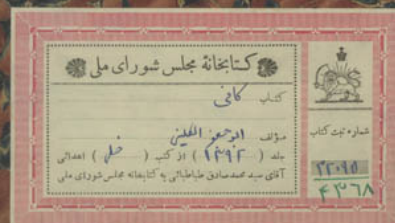 کتابخانهٔ مجلس شورای ملی
کتاب کافی
مؤلف ابوجعفر الکلینی
جلد (۱۳۹۲) از کتب (خطی) اهدائی
آقای سید محمدصادق طباطبائی به کتابخانهٔ مجلس شورای ملی
شماره ثبت کتاب
۲۲۰۹۵
۴۳۶۸